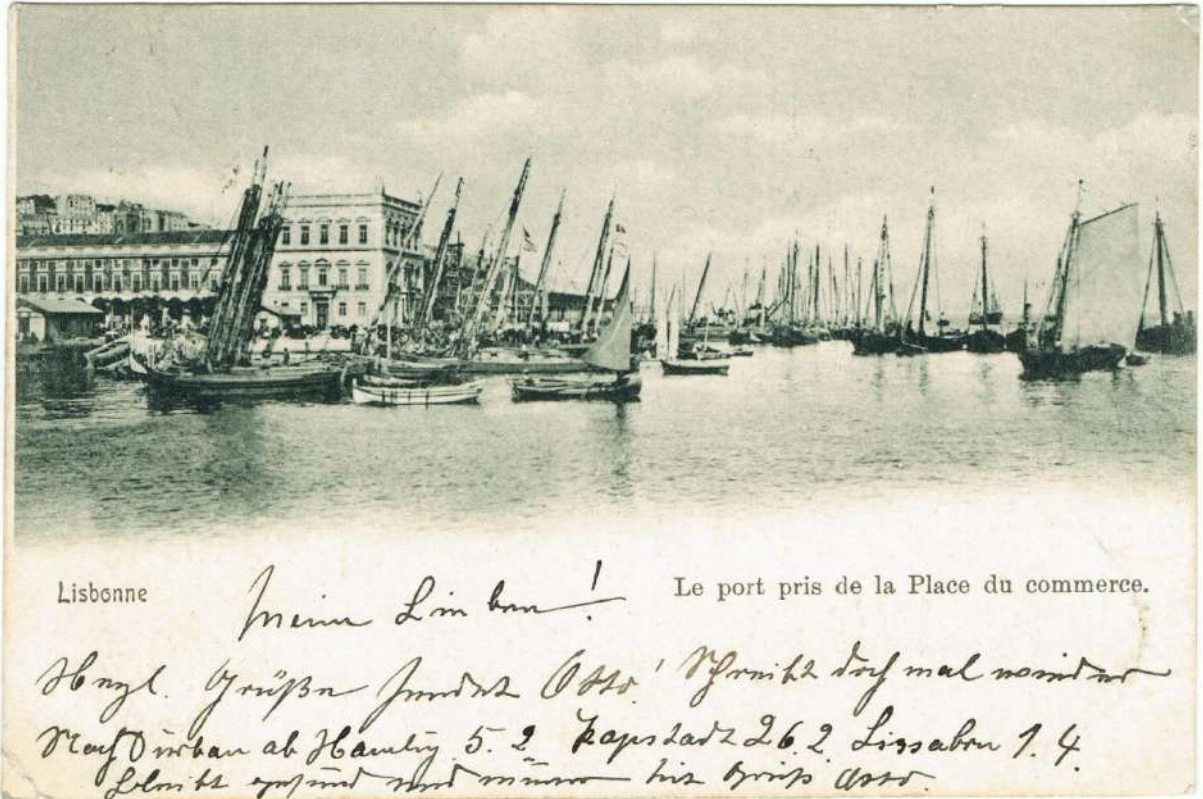 Lisbonne
Le port pris de la Place du commerce.
Meine Lieben!
Herzl. Grüße sendet Otto! Schreibt doch mal wieder
Nach Durban ab Hambg 5. 2. Kapstadt 26. 2. Lissabon 1. 4.
bleibt gesund und munter Gruß Otto.